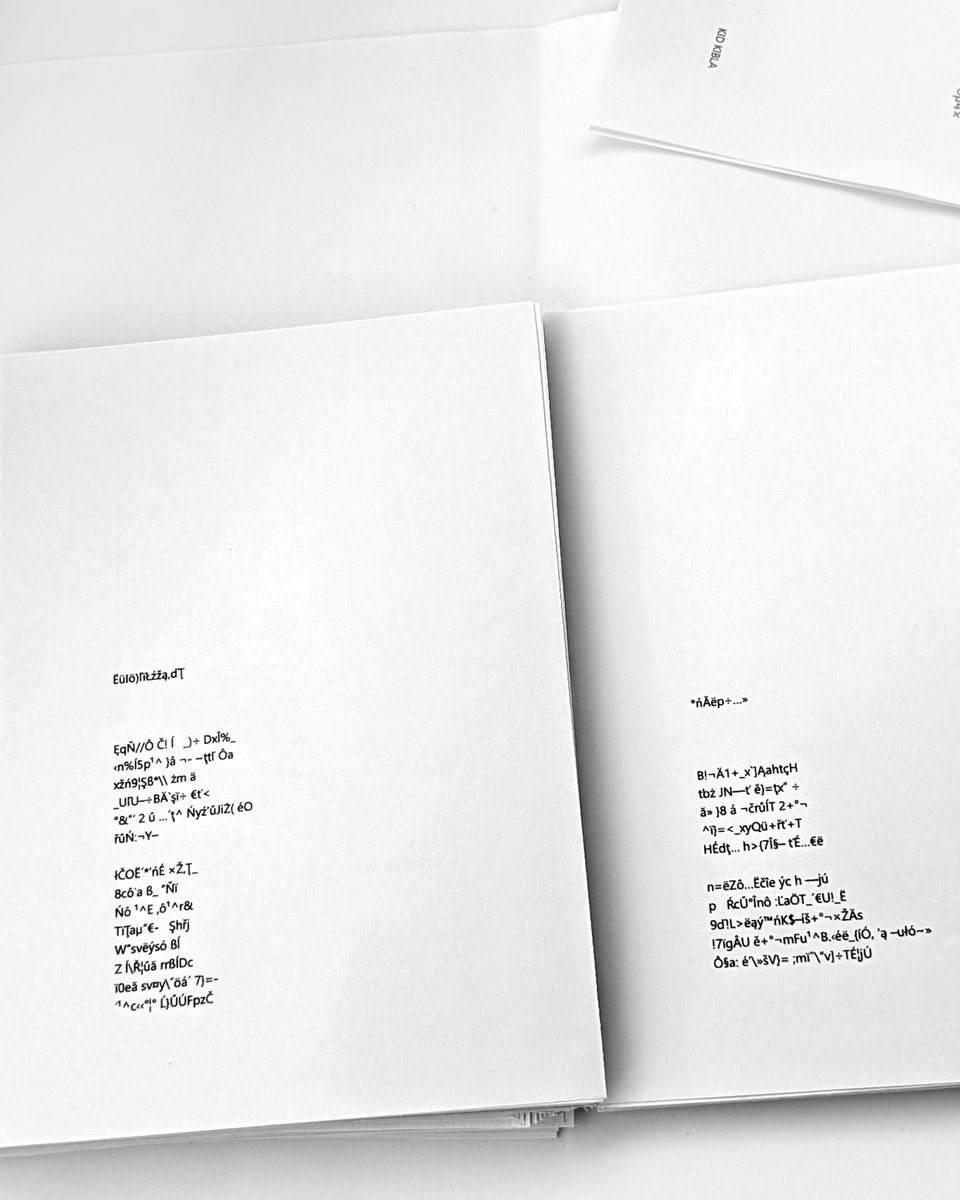 KID KIBLA
Ëülö)ľïŁźžą‚dŢ
ĘqÑ//Ô Č! Í _)÷ DxÎ%_
‹n%Í5p¹^ }â ¬- ~ţtľ Ôa
xžń9¦Şß*\\ żm ä
_UľU—÷BÄ`şï÷ €ť<
°&"' 2 ű ...´ţ^ Ńyź'űJiŻ( éO
řűŃ:¬Y–
łČOË´*'ńÉ ×Ž‚Ţ_
8cô´a ß_ "Ñï
Ńô ¹^E ‚ô¹^r&
TïŢaµ"€- Şhřj
W"svëýsó ßÍ
Z Í\Ř¦űă rrßÍDc
ï0eă sv¤y\˝öá´ 7}=-
·¹^c‹‹°¦° Ĺ}ŰÚFpzČ
*ńĂëp÷...»
B!¬Ä1+_x`]ĄahtçH
tbż JN—ť ě}=ţx" ÷
ă» }8 á ¬črűÍT 2+°¬
^ï}=<_xyQü+řť+T
HÉdţ... h>(7Î§– ťÉ...€ë
n=ëZô...Ëčîe ýc h —jú
p ŔcÚ°Înô :ĽaÖT_´€U!_Ë
9ď!L>ëąý™ńK$–íš+°¬×ŽĂs
!7ïgÂU ě+°¬mFu¹^B.‹éë_{íÓ, 'ą –ułó~»
Ô§a: é'\»šV}= ;mï˝\"v]÷TÉ¦jÚ